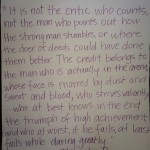 "It is not the critic who counts,
not the man who points out how
the strong man stumbles, or where
the doer of deeds could have done
them better. The credit belongs to
the man who is actually in the arena
whose face is marred by dust and
sweat and blood, who strives valiantly
who at best knows in the end
the triumph of high achievement
and who at worst, if he fails, at least
fails while daring greatly."